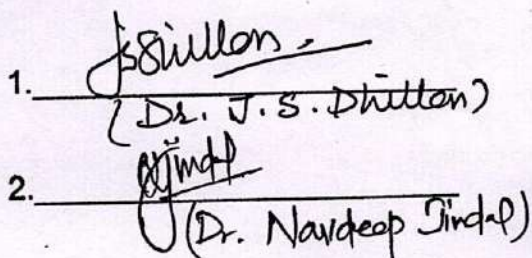 1. JsDhillon
(Dr. J. S. Dhillon)
2. Jindal
(Dr. Navdeep Jindal)